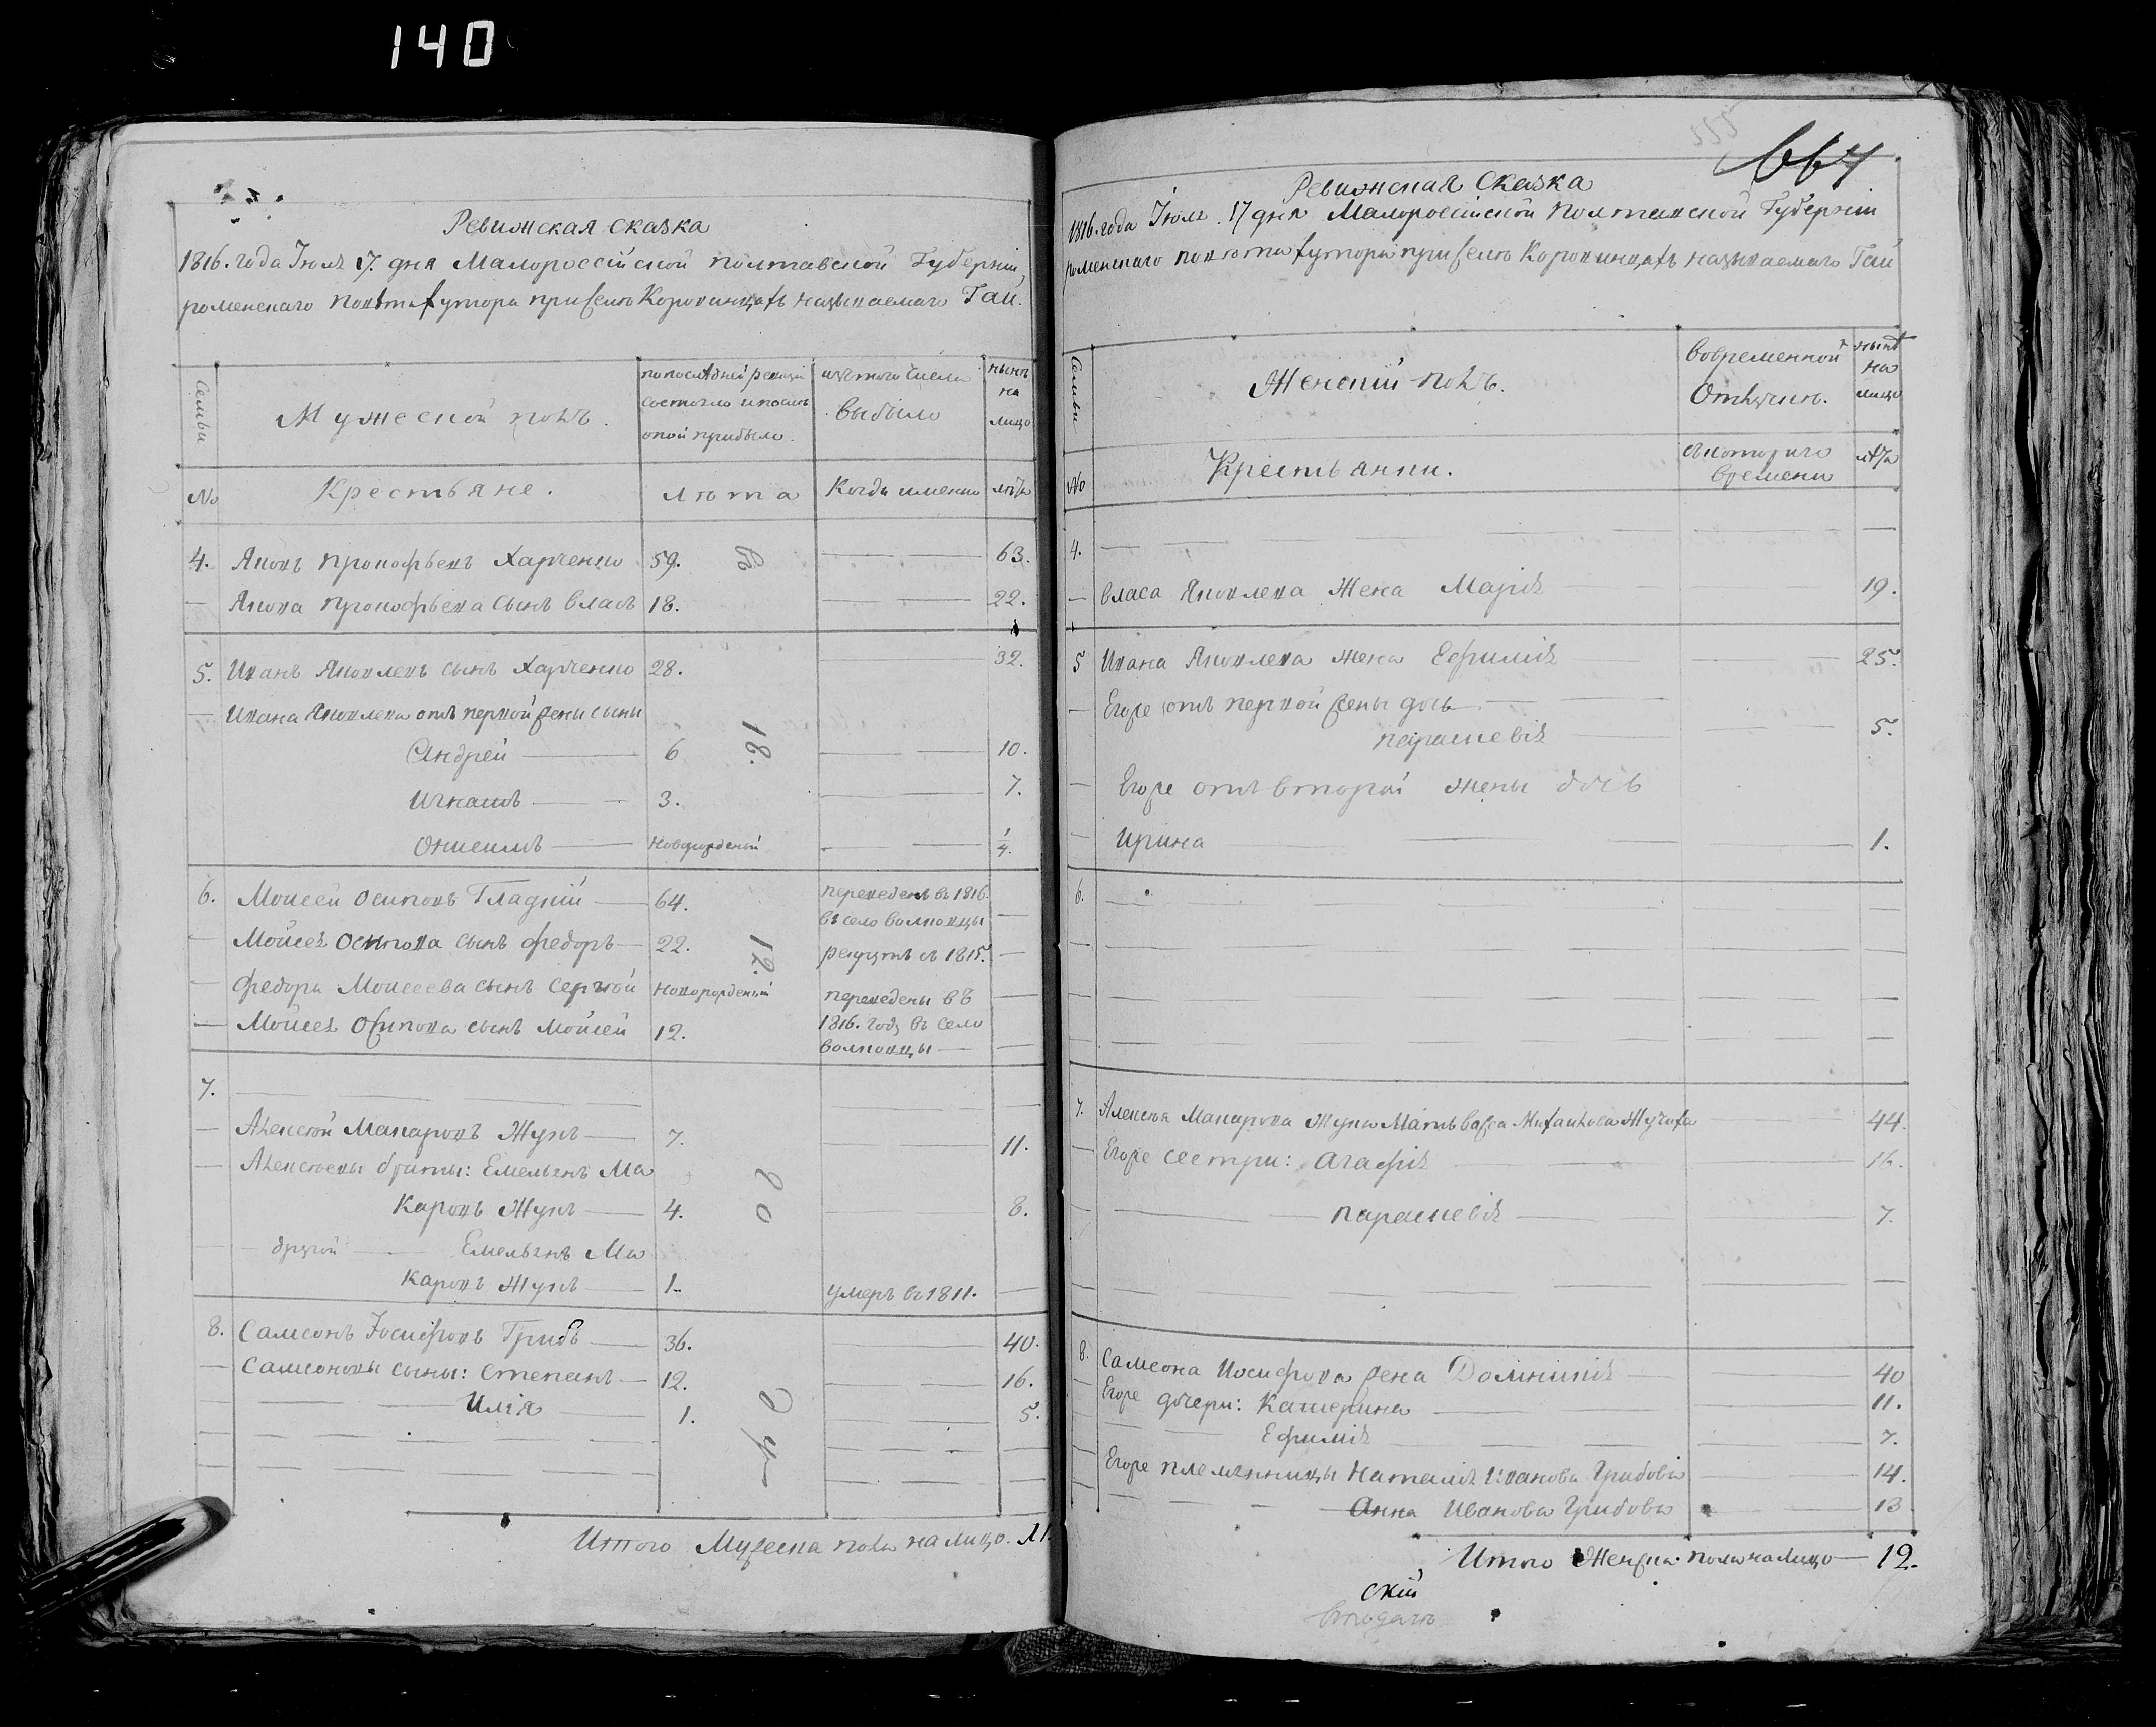 140
Ревижская сказка
1816. года Іюля 17. дня Малороссійской полтавской Губерніи,
роменскаго повѣта хутора при селѣ Коровинцахъ называемаго Гай.
Семьи
Мужеской полъ.
по последней ревизіи
состояло и послѣ
оной прибыло.
изъ того числа
выбыло
нынѣ
на
лицо
№
Крестьяне.
лѣта
Когда именно
лѣта
4. Яковъ прокофьевъ Харченко 59. 8 63.
Якова прокофьева сынъ власъ 18. 22.
5. Иванъ Яковлевъ сынъ Харченко 28. 32.
Ивана Яковлева отъ первой жены сыны
Андрей 6 18. 10.
Игнатъ 3. 7.
Онисимъ новорожденый 1/4.
6. Моисей осиповъ Гладкій 64. переведенъ въ 1816.
въ село волковцы
Моисея осипова сынъ федоръ 22. 12. рекрутъ въ 1815.
федора Моисеева сынъ сергѣй новорожденый переведены въ
Моисея осипова сынъ Моисей 12. 1816. году въ село
волковцы
7.
Алексѣй Макаровъ Жукъ 7. 11.
Алексѣевы браты: Емельянъ Ма
Каровъ Жукъ 4. 20 8.
другой Емельянъ Ма
Каровъ Жукъ 1. умеръ въ 1811.
8. Самсонъ Іосифовъ Грибъ 36. 40.
Самсоновы сыны: степанъ 12. 16.
Илія 1. 24 5.
Итого Мужеска пола на лицо. 11.
664
Ревижская Сказка
1816. года Іюля. 17 дня Малороссійской полтавской Губерніи
роменскаго повѣта хутора при селѣ Коровинцахъ называемаго Гай
Семьи
Женскій полъ.
Вовременной
Отлучкѣ.
нынѣ
на
лицо
№
Крестьянки.
съ котораго
времени
лѣта
4.
власа Яковлева Жена Марія 19.
5 Ивана Яковлева жена Ефимія 25.
Егоже отъ первой жены дочь
парасковія 5.
Егоже отъ второй жены дочь
Ирина 1.
6.
7. Алексѣя Макарова Жука Мать васса Михайлова Жучиха 44.
Егоже сестри: Агафія 16.
парасковія 7.
8. Самсона Иосифова жена Домникія 40
Егоже дочери: Катерина 11.
Ефимія 7.
Егоже племянницы Наталія Иванова Грибова 14.
Анна Иванова Грибова 13
Итого Женска пола на лицо 12.
скій